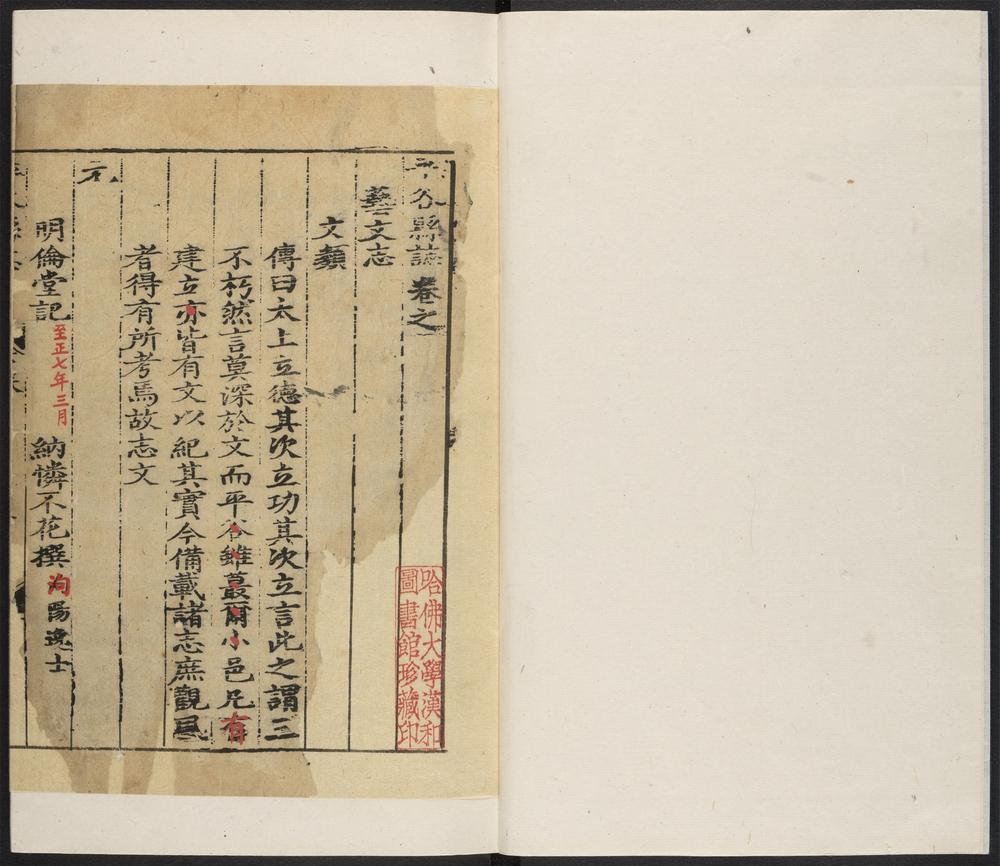 平谷縣誌卷之
藝文志
文類
傳曰太上立德其次立功其次立言此之謂三
不朽然言莫深於文而平谷雖蕞爾小邑凡有
建立亦皆有文以紀其實今備載諸志庶觀風
者得有所考焉故志文
元
明倫堂記 至正七年三月 納憐不花撰 泃陽逸士
哈佛大學漢和
圖書館珍藏印